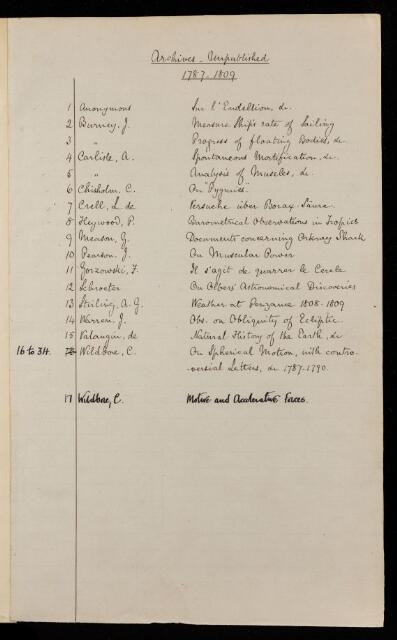 Archives - Unpublished
1787-1809
1 Anonymous Sur l'Endellion, &c.
2 Burney, J. Measure Ship's rate of Sailing
3 " Progress of floating Bodies, &c
4 Carlisle, A. Spontaneous Mortification, &c.
5 " Analysis of Muscles, &c.
6 Chisholm, C. On "Pygmies"
7 Crell, L. de Versuche über Borax-Säure
8 Heywood, P. Barometrical Observations in Tropics
9 Menson, G. Documents concerning Orkney Shark
10 Pearson, J. On Muscular Power
11 Gorzowski, F. Il s'agit de quarrer le Cercle
12 Schroeter On Olbers' Astronomical Discoveries
13 Stirling, A. G. Weather at Penzance 1808-1809
14 Warren, J. Obs. on Obliquity of Ecliptic
15 Valangin, de Natural History of the Earth, &c
16 to 34. Wildbore, C. On Spherical Motion, with contro-
versial Letters, &c 1787-1790.
17 Wildbore, C. Motive and Accelerative Forces.